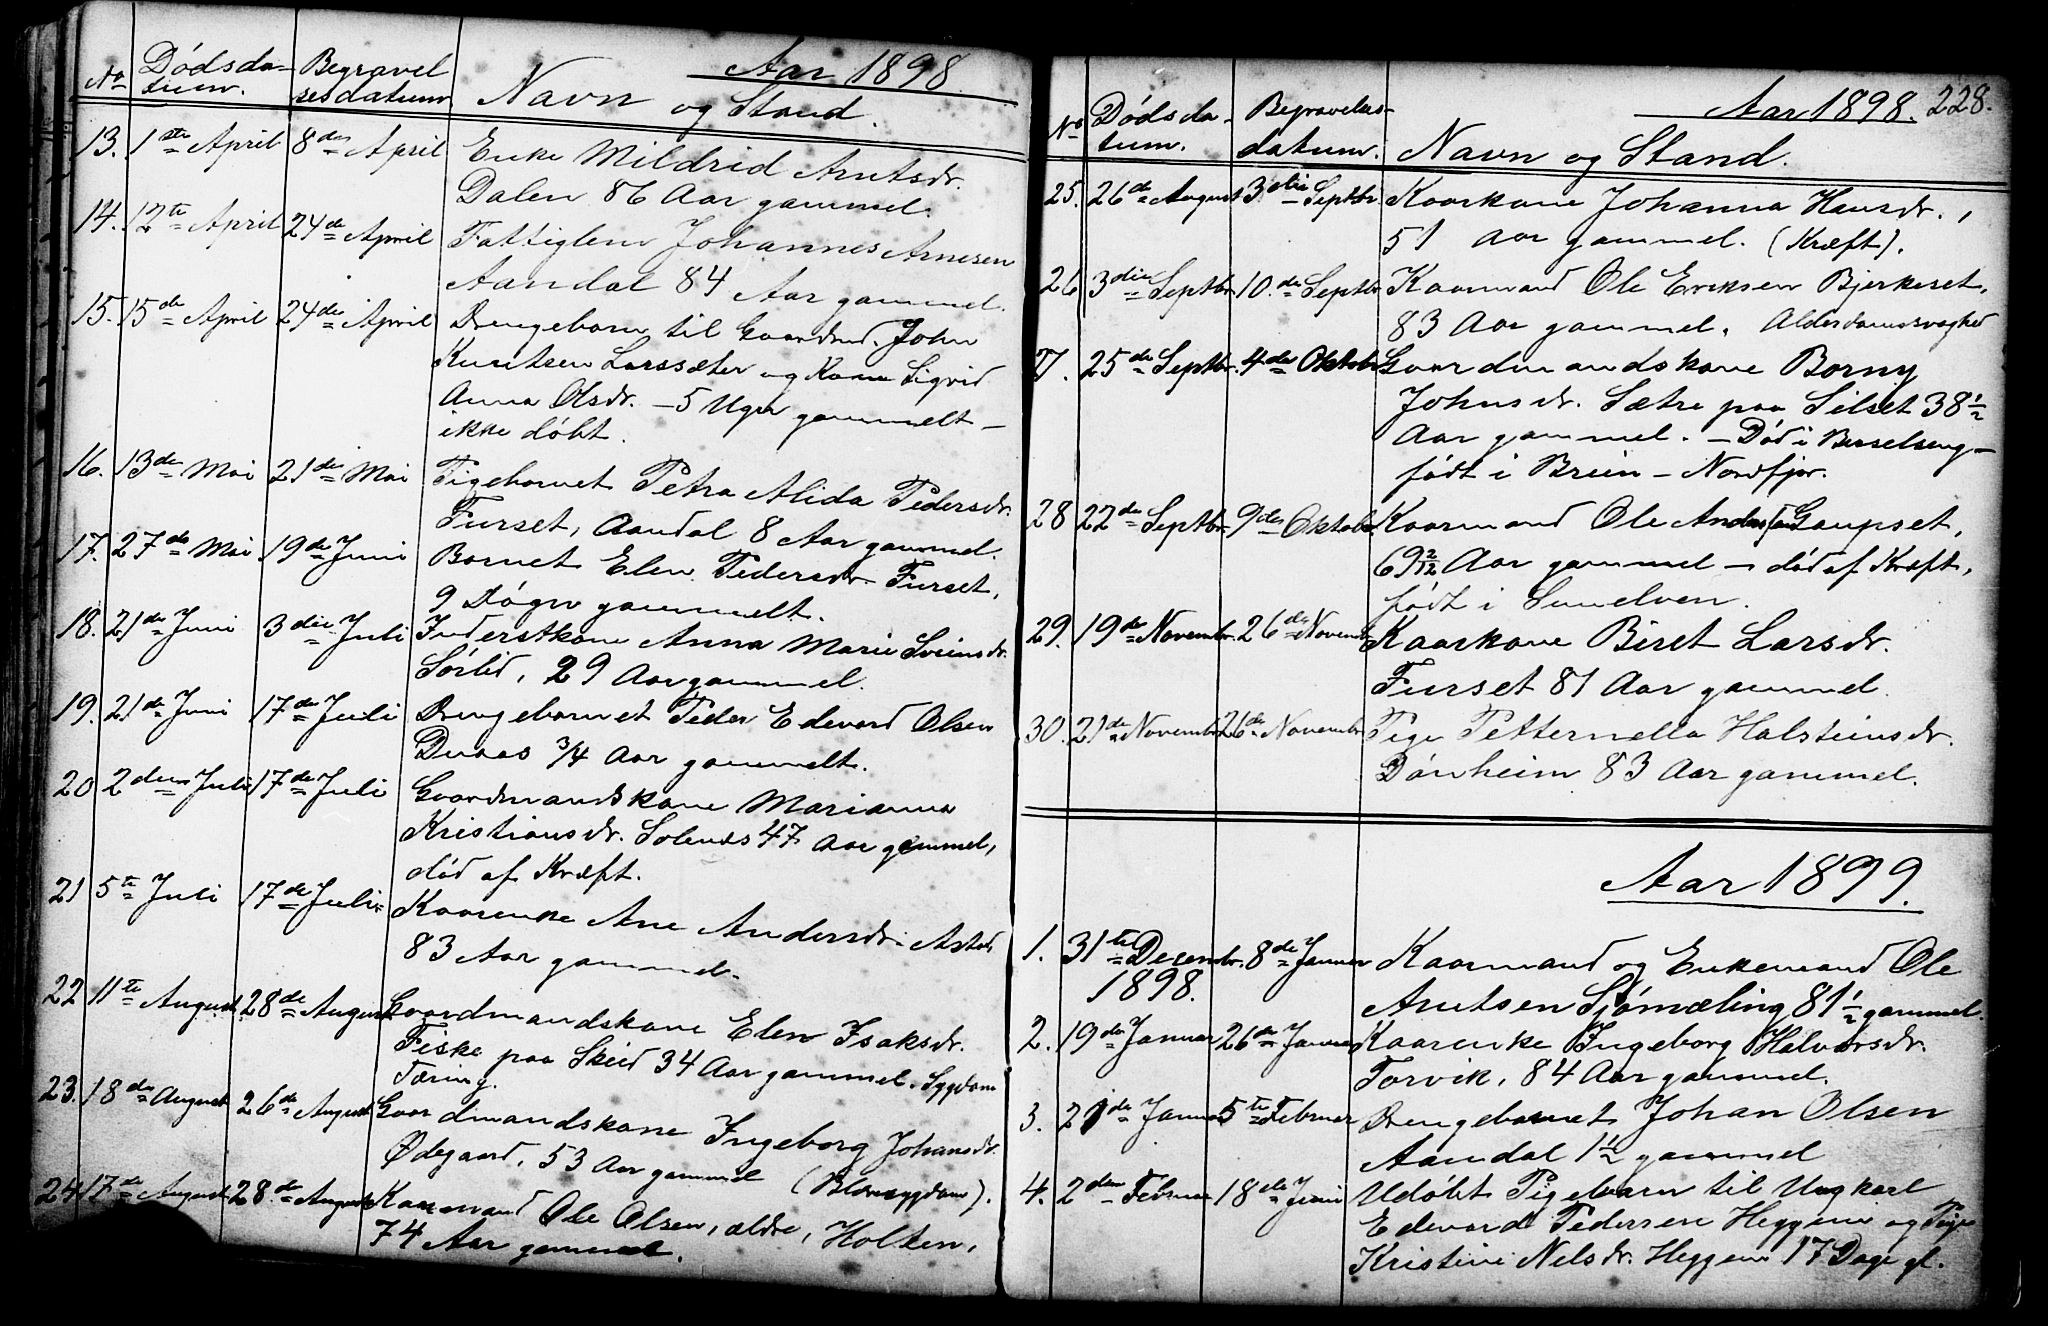 Aar 1898.
No Dödsda- Begravel Navn og Stand.
tum. sesdatum
13. 1ste April 8de April Enke Mildrid Arntsdr.
Dalen 86 Aar gammel.
14. 12te April 24de April Fattiglem Johannes Arnesen
Aandal 84 Aar gammel.
15. 15de April 24de April Drengebarn til Gaardmd. John
Knutsen Larssæter og Kone Sigrid
Anna Olsdr. – 5 Uger gammelt –
ikke döbt.
16. 13de Mai 21de Mai Pigebarnet Petra Alida Pedersdr.
Furset, Aandal 8 Aar gammel.
17. 27de Mai 19de Juni Barnet Elen Pedersdr. Furset,
9 Dögn gammelt.
18. 21de Juni 3die Juli Inderstkone Anna Marie Sveinsdr.
Sörlid, 29 Aar gammel.
19. 21de Juni 17de Juli Drengebarnet Peder Edevard Olsen
3/4 Aar gammelt.
20 2den Juli 17de Juli Gaardmandskone Marianna
Kristiansdr. Solenes 47 Aar gammel,
död af Kræft.
21 5te Juli 17de Juli Kaarenke Ane Andersdr.
83 Aar gammel.
22 11te August 28de August Gaardmandskone Elen Isaksdr.
Fiske paa Skeid 34 Aar gammel. Sygdom
Tæring.
23. 18de August 26de August Gaardmandskone Ingeborg Johansdr.
Ødegaard, 53 Aar gammel
24 17de August 28de August Kaarmand Ole Olsen, ældre, Holten,
74 Aar gammel.
Aar 1898. 228.
No Dödsda- Begravelses-
tum. datum. Navn og Stand.
25. 26de August 3die Septbr Kaarkone Johanna Hansdr.,
51 Aar gammel. (Kræft).
26 3die Septbr 10de Septbr Kaarmand Ole Eriksen Bjerkeset,
83 Aar gammel. Alderdomssvaghed
27. 25de Septbr. 4de Oktobr Gaardmandskone Borny
Johnsdr. Sætre paa Silset 38 1/2
Aar gammel. – Död i Barselseng –
födt i Breim – Nordfjor.
28 22de Septbr. 9de Oktobr. Kaarmand Ole Andersen Gaupset,
69 2/12 Aar gammel – död af Kræft,
födt i Sunelven.
29. 19de Novembr. 26de Novembr Kaarkone Beret Larsdr.
Furset 81 Aar gammel.
30. 21de Novembr 26de Novembr Pige Petternella Halsteinsdr.
Dönheim 83 Aar gammel.
Aar 1899.
1. 31te Decembr. 8de Januar Kaarmand og Enkemand Ole
1898. Arntsen Sjömæling 81 1/2 gammel.
2. 19de Januar 26de Januar Kaarenke Ingeborg Halvorsdr.
Torvik, 84 Aar gammel.
3. 21de Januar 5te Februar Drengebarnet Johan Olsen
Aandal 1 1/2 gammel
4. 2den Februar 18de Juni Udöbt Pigebarn til Ungkarl
Edevard Pedersen Heggem og Pige
Kristine Nelsdr. Heggem 17 Dage gl.